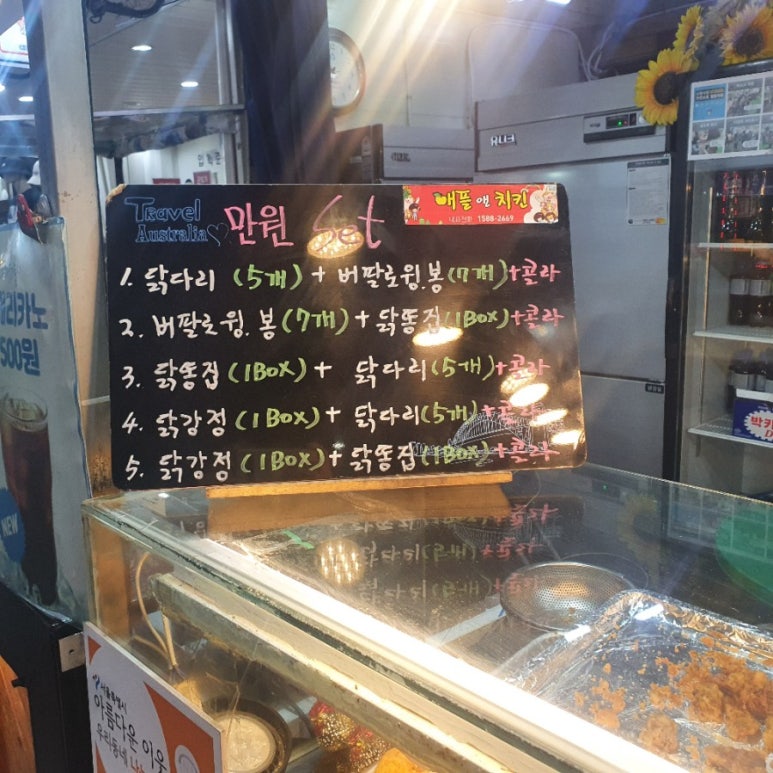 Travel
Australia♡
만원 Set
애플 앤 치킨
1588-2669
1. 닭다리 (5개) + 버팔로윙.봉(7개)+콜라
2. 버팔로윙.봉(7개)+닭똥집(1BOX)+콜라
3. 닭똥집(1BOX)+ 닭다리(5개)+콜라
4. 닭강정 (1BOX)+ 닭다리(5개)+콜라
5. 닭강정 (1BOX)+닭똥집(1BOX)+콜라
500원
NEW
서울특별시
아름다운 이웃